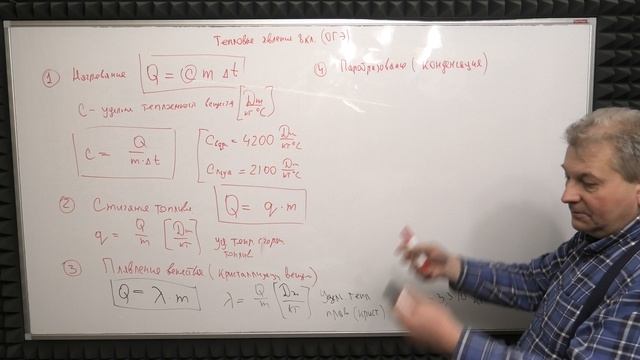 Тепловые явления 8 кл. (ОГЭ)
① Нагревание Q = c m Δt
C - удельн теплоемк вещества [Дж/кг°C]
C = Q/m·Δt
Cвода = 4200 Дж/кг°C
Cльда = 2100 Дж/кг°C
② Сгорание топлива Q = q · m
q = Q/m [Дж/кг] уд тепл сгоран
топлив
③ Плавление вещества (кристаллизац вещ)
Q = λ · m λ = Q/m [Дж/кг] удел. тепл
плав (крист)
④ Парообразование (конденсация)